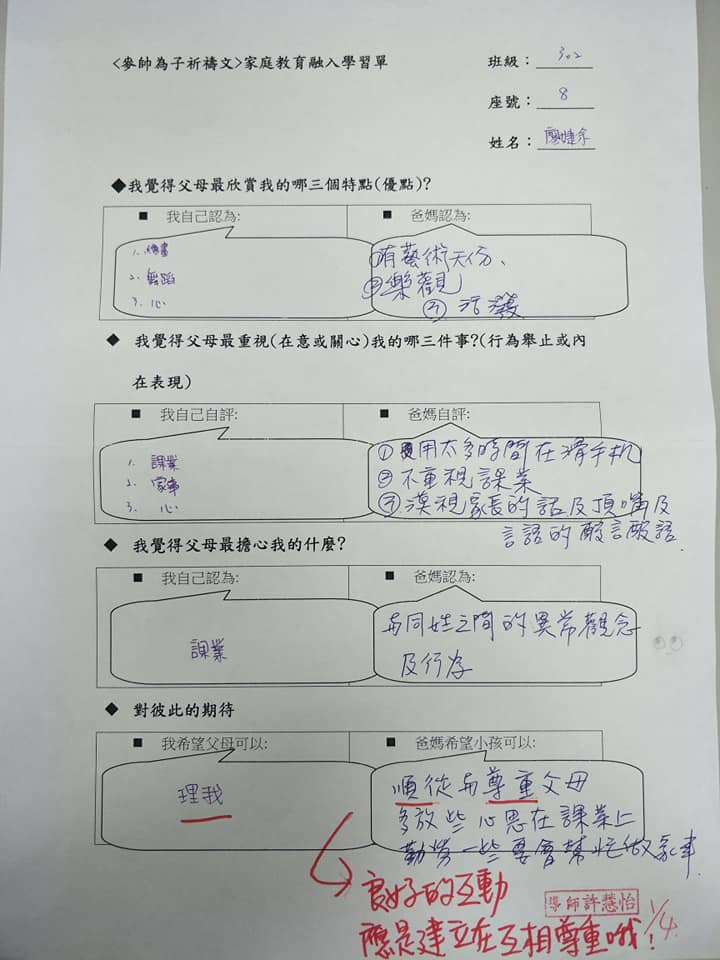 <麥帥為子祈禱文>家庭教育融入學習單
班級：302
座號：8
姓名：
◆我覺得父母最欣賞我的哪三個特點(優點)?
■ 我自己認為:
1. 繪畫
2. 舞蹈
3. 心
■ 爸媽認為:
①有藝術天份、
②樂觀
③活潑
◆ 我覺得父母最重視(在意或關心)我的哪三件事?(行為舉止或內
在表現)
■ 我自己自評:
1. 課業
2. 家事
3. 心
■ 爸媽自評:
①用太多時間在滑手机
②不重視課業
③漠視家長的話及頂嘴及
言語的酸言酸語.
◆ 我覺得父母最擔心我的什麼?
■ 我自己認為:
課業
■ 爸媽認為:
与同姓之間的異常觀念
及行為
◆ 對彼此的期待
■ 我希望父母可以:
理我
■ 爸媽希望小孩可以:
順從与尊重父母
多放些心思在課業上
勤勞一些要會幫忙做家事.
良好的互動
應是建立在互相尊重哦!
導師許慧怡
1/4.